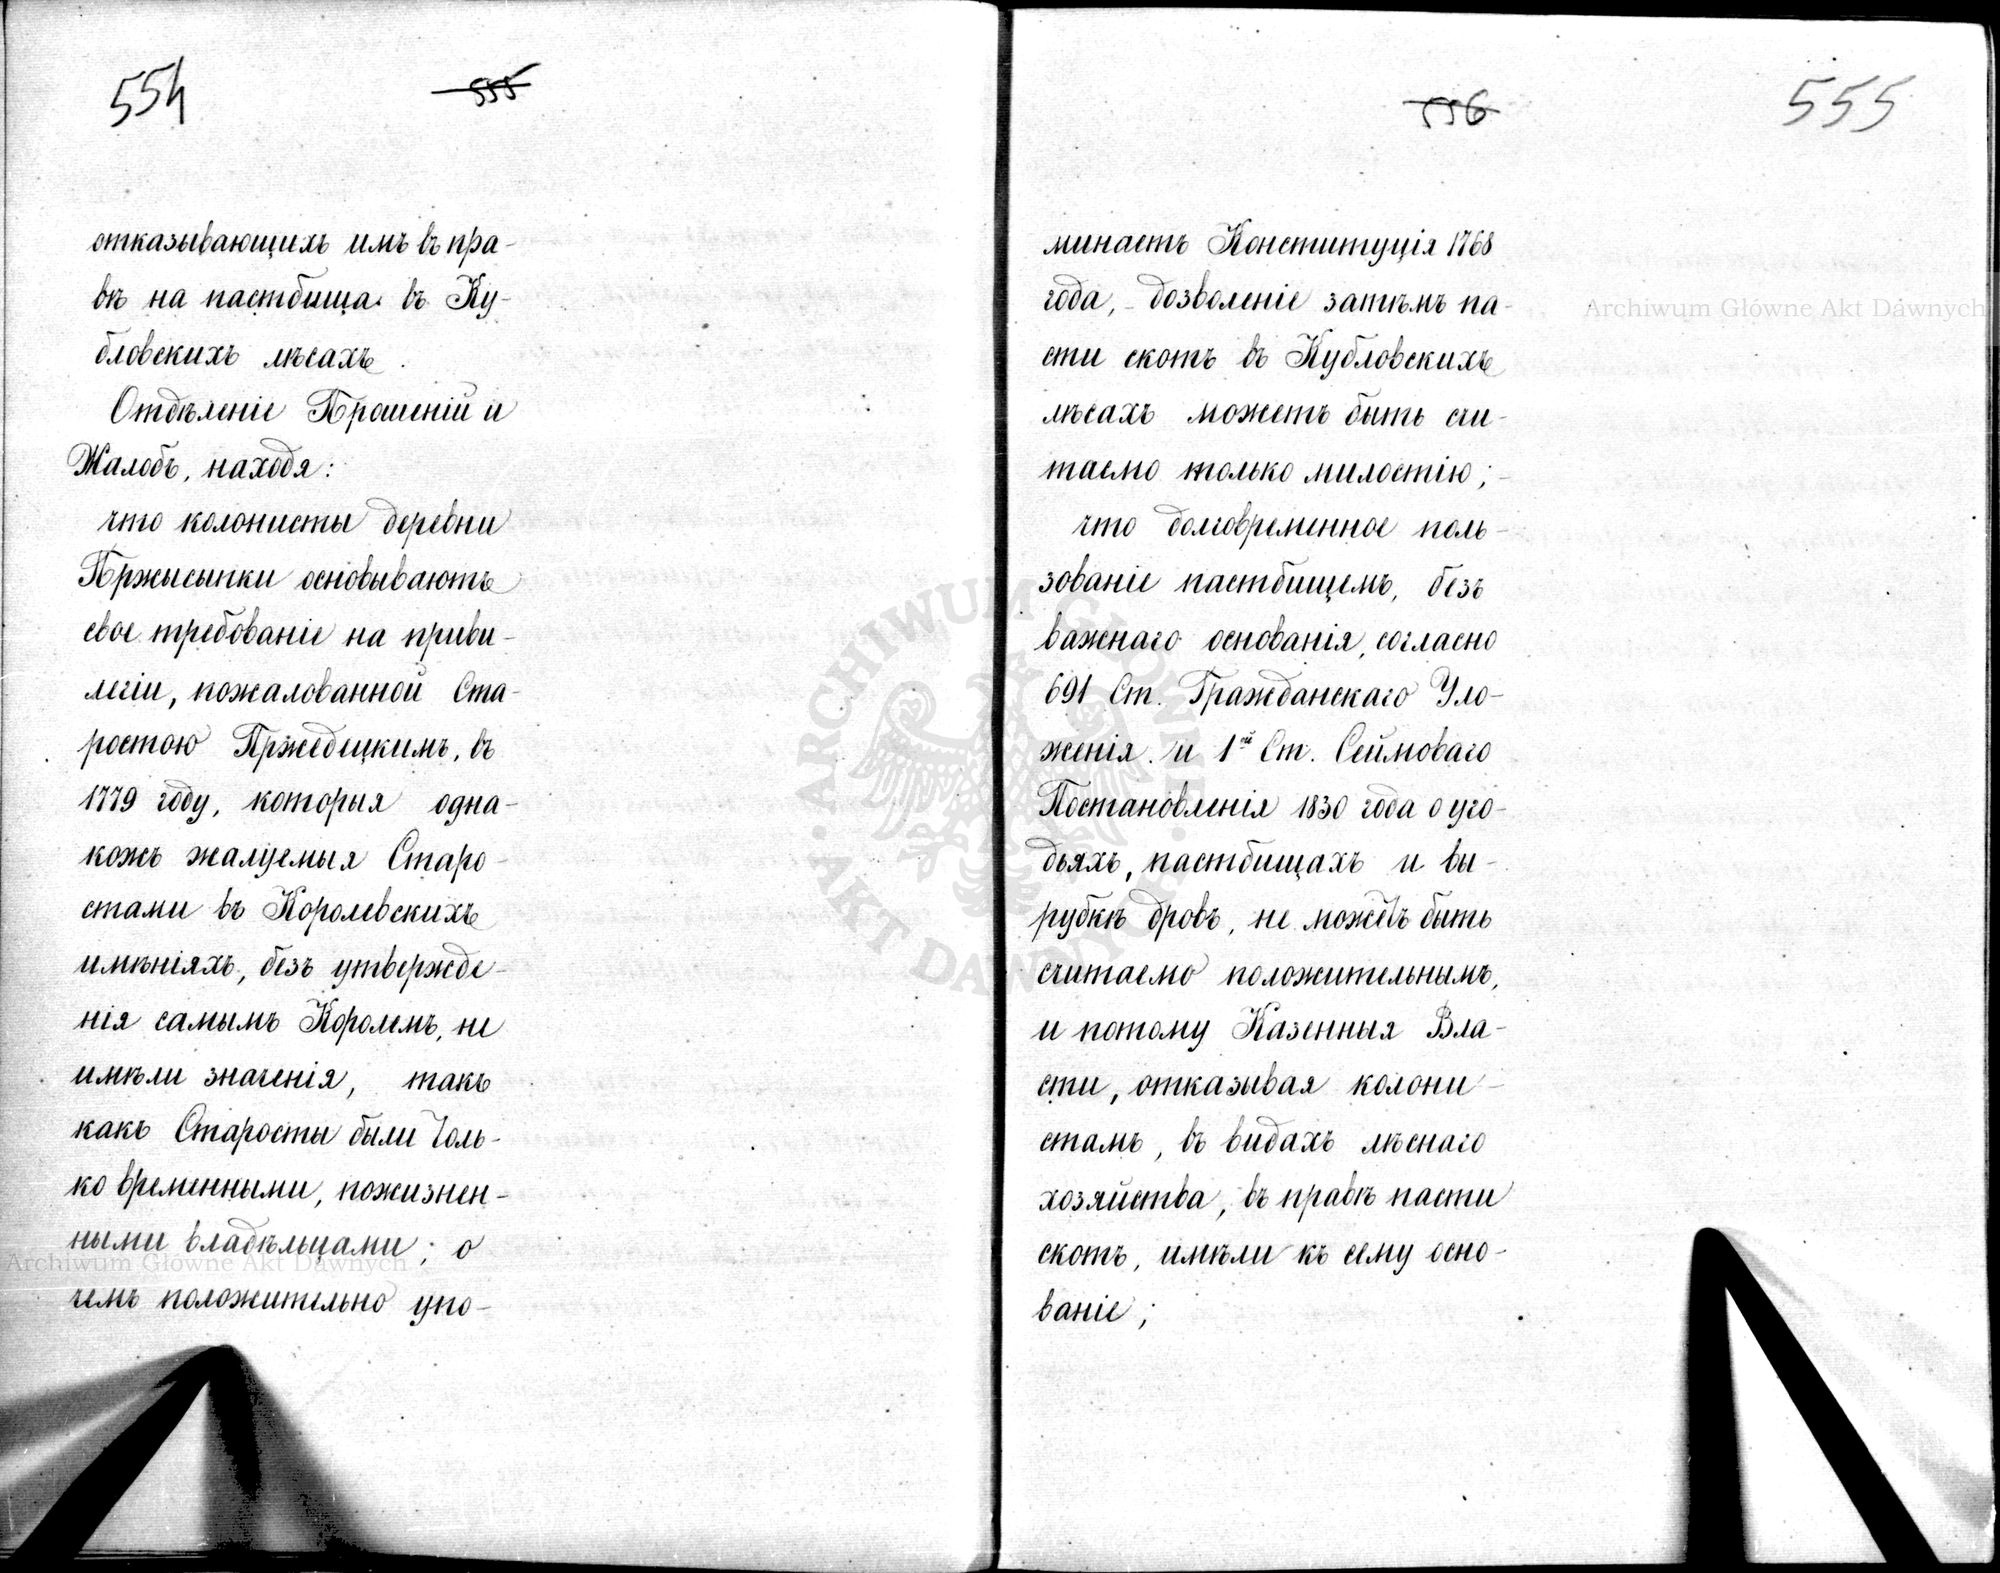 554
555
отказывающихъ имъ въ пра-
вѣ на пастбища въ Ку-
бловскихъ лѣсахъ.
Отдѣленіе Прошеній и
Жалобъ, находя:
что колонисты деревни
Пржысыпки основываютъ
свое требованіе на приви-
легіи, пожалованной Ста-
ростою Пржедецкимъ, въ
1779 году, которыя одна-
кожъ жалуемыя Старо-
стами въ Королевскихъ
имѣніяхъ, безъ утвержде-
нія самымъ Королемъ, не
имѣли значенія, такъ
какъ Старосты были толь-
ко временными, пожизнен-
ными владѣльцами; о
чемъ положительно упо-
Archiwum Główne Akt Dawnych
556
555
минаетъ Конституція 1768
года, - дозволеніе затѣмъ па-
сти скотъ въ Кубловскихъ
лѣсахъ можетъ быть счи-
таемо только милостію; -
что долговременное поль-
зованіе пастбищемъ, безъ
важнаго основанія, согласно
691 Ст. Гражданскаго Уло-
женія и 1ой Ст. Сеймоваго
Постановленія 1830 года о уго-
дьяхъ, пастбищахъ и вы-
рубкѣ дровъ, не можетъ быть
считаемо положительнымъ,
и потому Казенныя Вла-
сти, отказывая колони-
стамъ, въ видахъ лѣснаго
хозяйства, въ правѣ пасти
скотъ, имѣли къ сему осно-
ваніе;
Archiwum Główne Akt Dawnych
ARCHIWUM GŁÓWNE AKT DAWNYCH